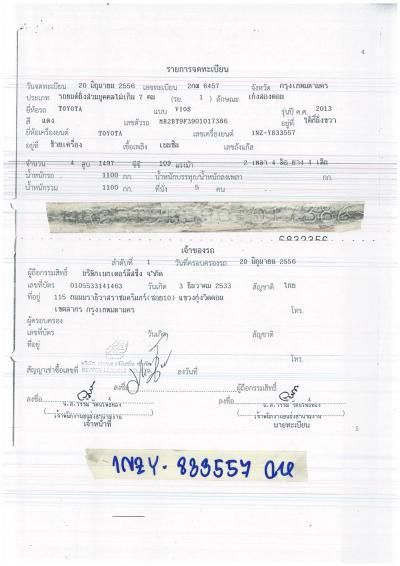 4
รายการจดทะเบียน
วันจดทะเบียน 20 มิถุนายน 2556 เลขทะเบียน 2กผ 6457 จังหวัด กรุงเทพมหานคร
ประเภท รถยนต์นั่งส่วนบุคคลไม่เกิน 7 คน (รย. 1 ) ลักษณะ เก๋งสองตอน
ยี่ห้อรถ TOYOTA แบบ VIOS รุ่นปี ค.ศ. 2013
สี แดง เลขตัวรถ MR2BT9F3901017386 อยู่ที่ ใต้ที่นั่งขวา
ยี่ห้อเครื่องยนต์ TOYOTA เลขเครื่องยนต์ 1NZ-Y833557
อยู่ที่ ซ้ายเครื่อง เชื้อเพลิง เบนซิน เลขถังแก๊ส
จำนวน 4 สูบ 1497 ซีซี 109 แรงม้า 2 เพลา 4 ล้อ ยาง 4 เส้น
น้ำหนักรถ 1100 กก. น้ำหนักบรรทุก/น้ำหนักลงเพลา กก.
น้ำหนักรวม 1100 กก. ที่นั่ง 5 คน
6832356
เจ้าของรถ
ลำดับที่ 1 วันที่ครอบครองรถ 20 มิถุนายน 2556
ผู้ถือกรรมสิทธิ์ บริษัทเมกเตอร์ลีสซิ่ง จำกัด
เลขที่บัตร 0105533141463 วันเกิด 3 ธันวาคม 2533 สัญชาติ ไทย
ที่อยู่ 115 ถนนนราธิวาสราชนครินทร์(ซอย10) แขวงทุ่งวัดดอน
เขตสาทร กรุงเทพมหานคร โทร.
ผู้ครอบครอง
เลขที่บัตร วันเกิด สัญชาติ
ที่อยู่
โทร.
สัญญาเช่าซื้อเลขที่ ลงวันที่
ลงชื่อ ผู้ถือกรรมสิทธิ์
ลงชื่อ ลงชื่อ
เจ้าหน้าที่ นายทะเบียน
5
1NZY-833557